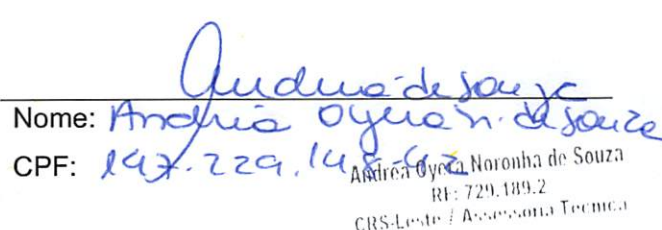 Andrea de Souza
Nome: Andréa Oyera N. de Souza
CPF: 147.229.148-42
Andréa Oyera Noronha de Souza
RF: 729.189.2
CRS-Leste / Assessoria Técnica